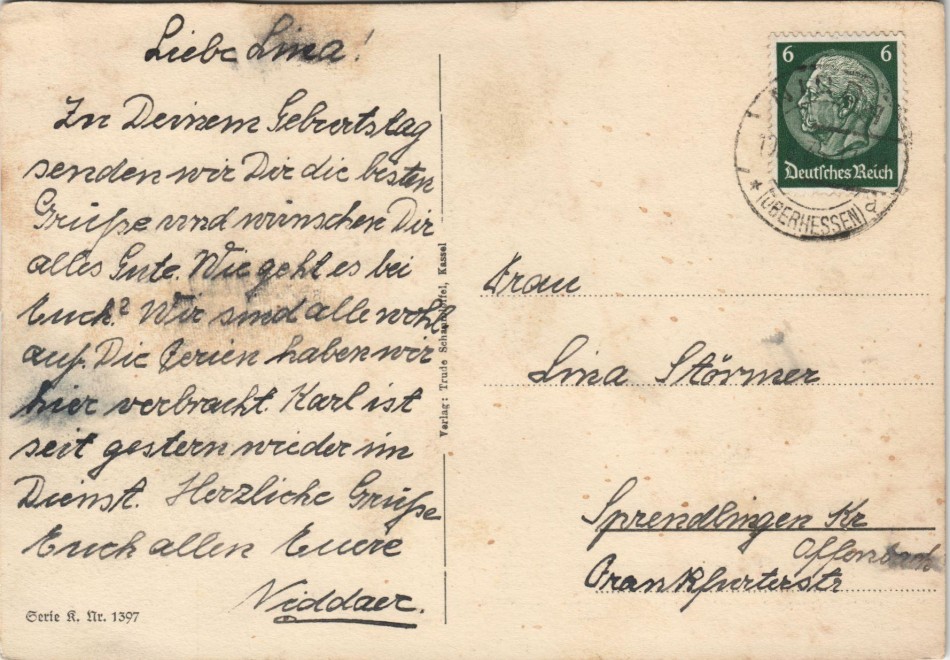 Liebe Lina!
Zu Deinem Geburtstag
senden wir Dir die besten
Grüße und wünschen Dir
alles Gute. Wie geht es bei
Euch? Wir sind alle wohl
auf. Die Ferien haben wir
hier verbracht. Karl ist
seit gestern wieder im
Dienst. Herzliche Grüße
Euch allen Euere
Niddaer.
Serie K. Nr. 1397
Verlag: Trude Kassel
6 6
Deutsches Reich
(OBERHESSEN) a
Frau
Lina Störmer
Sprendlingen Kr
Offenbach
Frankfurterstr